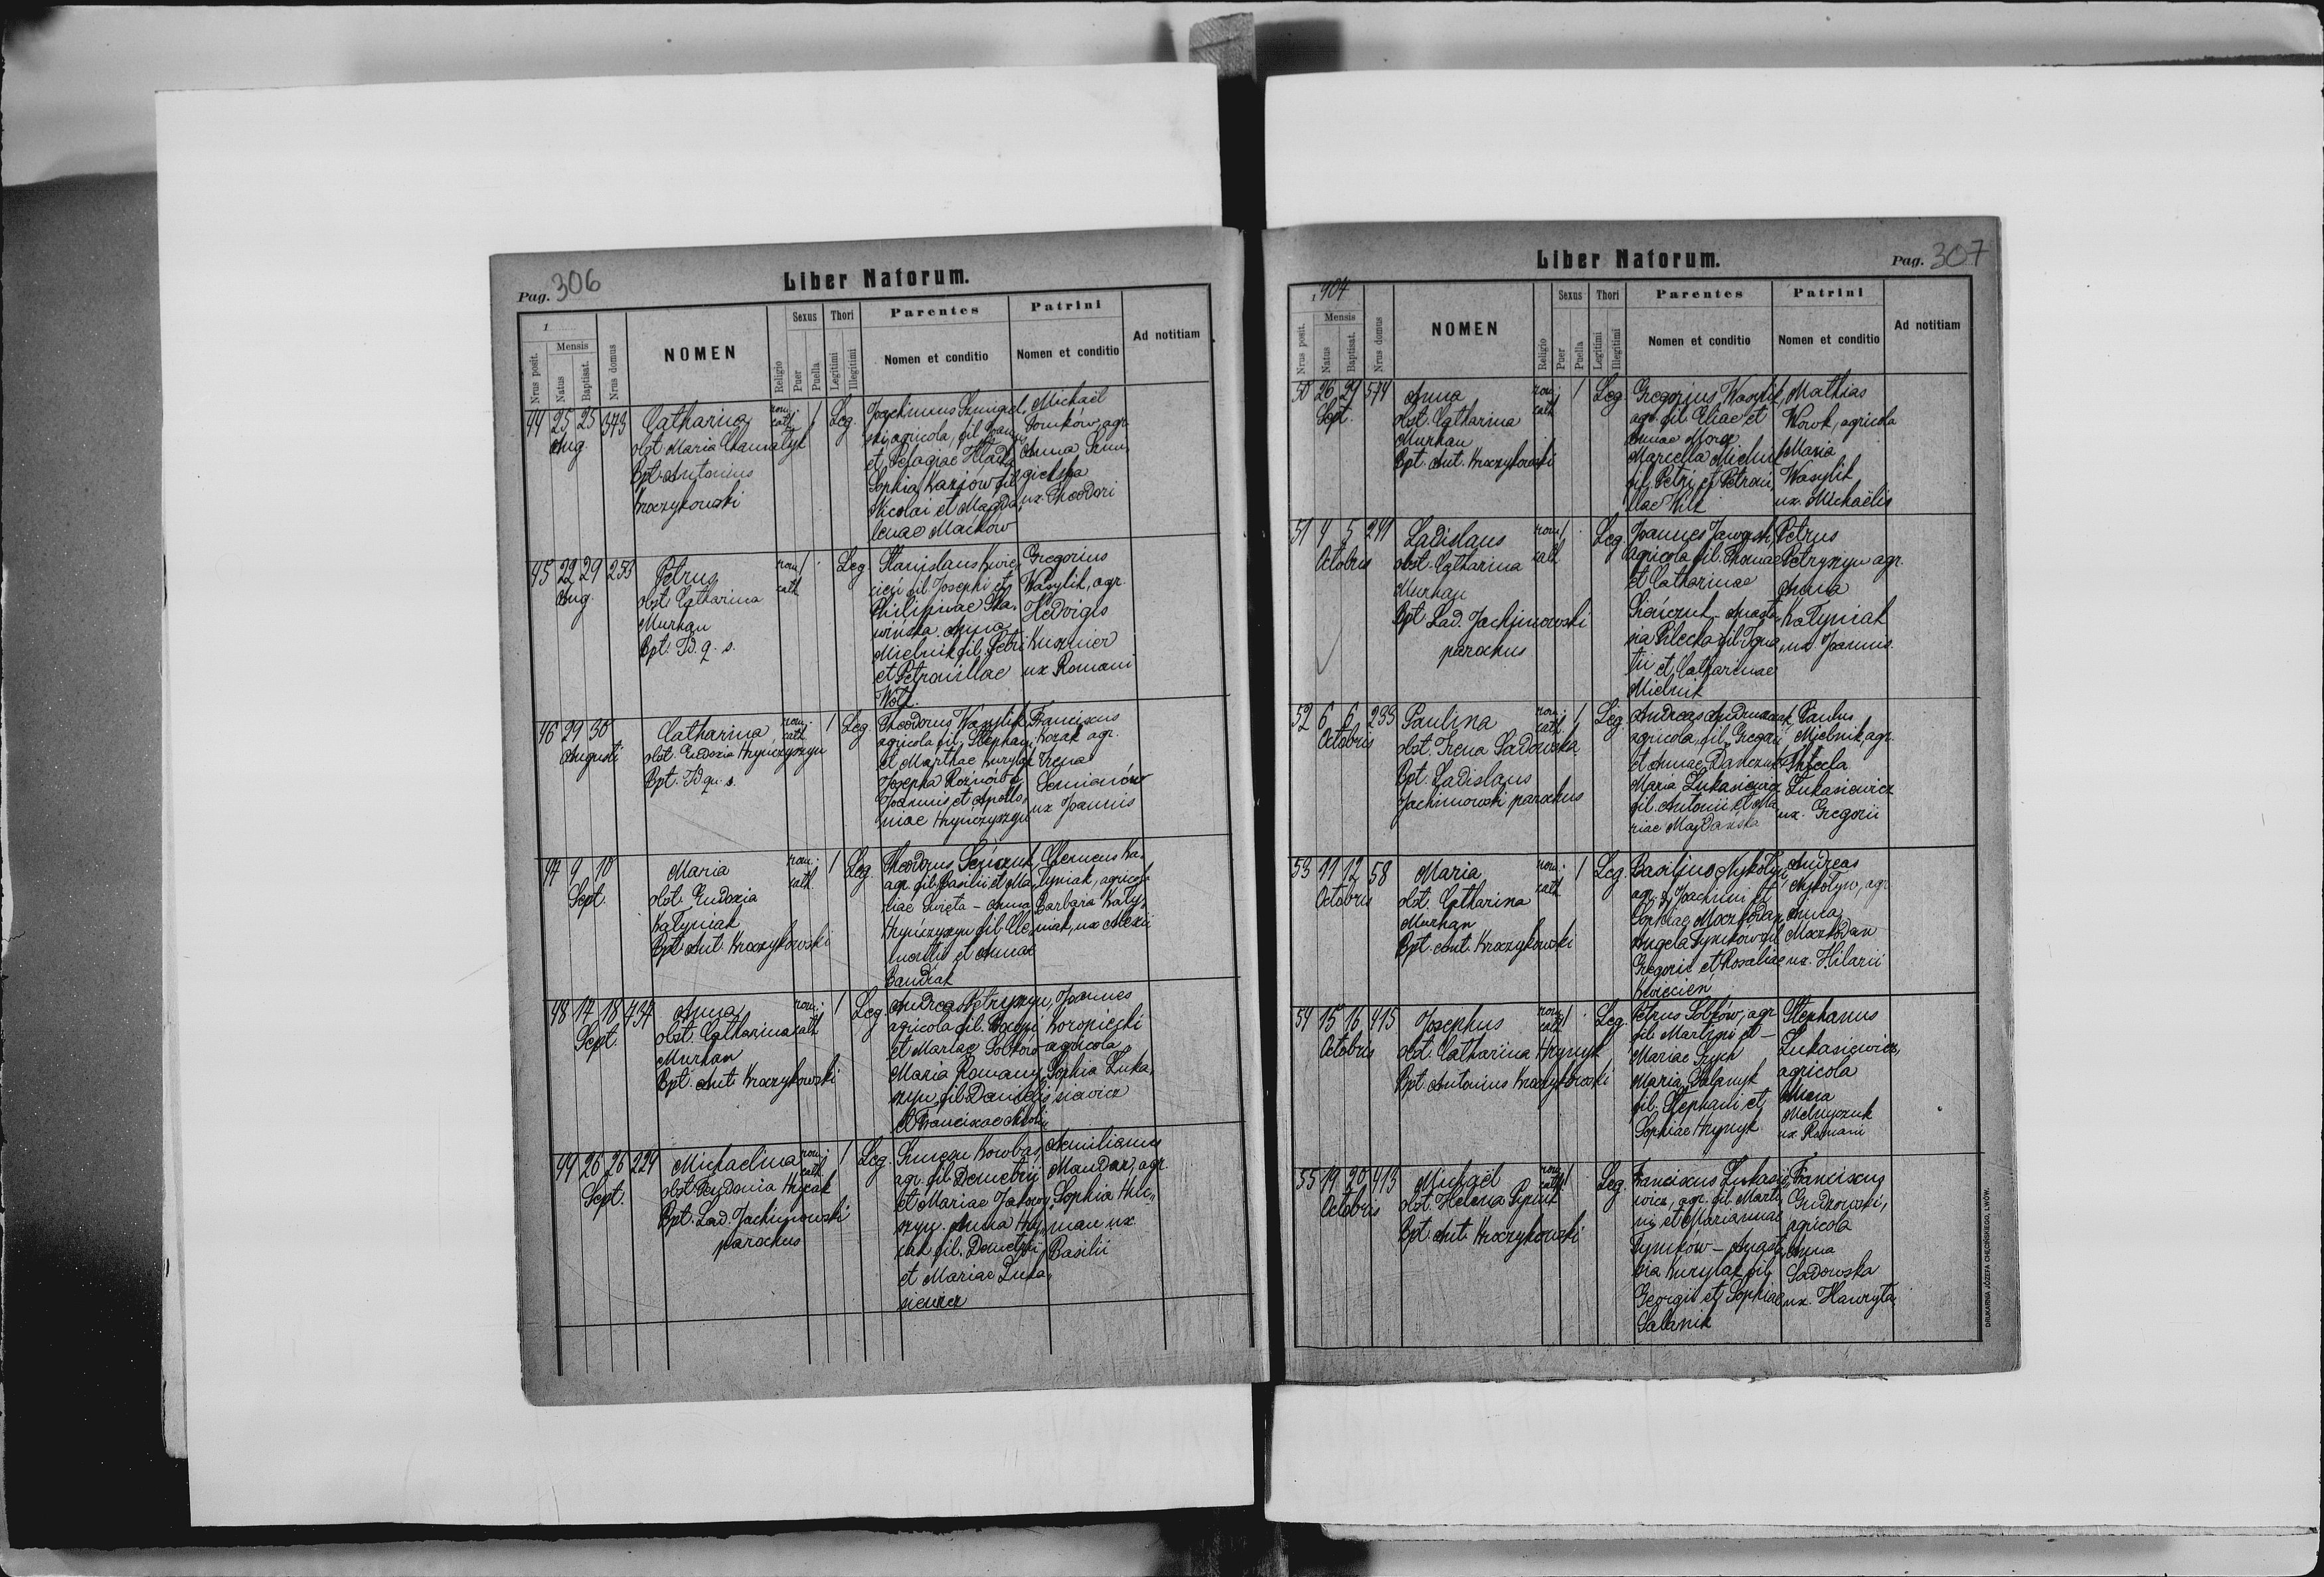 Pag. 306
Liber Natorum.
1
Nrus posit.
Mensis
Natus
Baptisat.
Nrus domus
NOMEN
Religio
Sexus
Puer
Puella
Thori
Legitimi
Illegitimi
Parentes
Nomen et conditio
Patrini
Nomen et conditio
Ad notitiam
44 25 25 373
Aug.
Catharina
obst. Maria
Bpt. Antonius
Kroczykowski
rom.
cath.
1
Leg.
Joachimus
agricola, fil.
et Pelagiae
Sophia fil.
Nicolai et Magda
lenae Maćków
Michaël
agr.
Anna
ux. Theodori
45 22 29 253
Aug.
Petrus
obst. Catharina
Murhan
Bpt. Id. q. s.
rom.
cath
1
Leg.
Stanislaus Kwie
cień fil. Josephi et
Philipinae
Anna
Mielnik fil. Petri
et Petronillae
Gregorius
Wasylik, agr.
Hedvigis
Kuzmier
ux. Romani
46 29 30
Augusti
Catharina
obst. Eudoxia Hrynczyszyn
Bpt. Id. qu. s.
rom.
cath
1
Leg.
Theodorus Wasylik
agricola fil. Stephani
et Marthae Kurylak
Josepha
Joannis et Apollo
niae Hrynczyszyn
Franciscus
Kozak agr.
Irena
Semianów
ux Joannis
47 9 10
Sept.
Maria
obst. Eudoxia
Katyniak
Bpt. Ant. Kroczykowski
rom.
cath.
1
Leg.
Theodorus
agr. fil. Basilii et Ma
riae Święta - Anna
Hrynczyszyn fil. Cle
mentis et Annae
Bandiak
Clemens Ka
tyniak, agricola
Barbara Katy
niak, ux Alexii
48 17 18 434
Sept.
Anna
obst. Catharina
Murhan
Bpt. Ant. Kroczykowski
rom.
cath
1
Leg.
Andreas Petryszyn
agricola fil.
et Mariae Sobków
Maria Romany
szyn, fil. Danielis
et Franciscae
Joannes
Koropiecki
agricola
Sophia Łuka
siewicz
49 26 26 224
Sept.
Michaelina
obst. Eudoxia Hrycak
Bpt. Lad. Jachimowski
parochus
rom.
cath.
1
Leg.
Simeon Kowbas
agr. fil. Demetrii
et Mariae Jakowy
szyn. Anna Hry
cak fil. Demetrii
et Mariae Łuka
siewicz
Aemilianus
Mandar, agr.
Sophia Hu
man ux
Basilii
Liber Natorum.
Pag. 307
1904
Nrus posit.
Mensis
Natus
Baptisat.
Nrus domus
NOMEN
Religio
Sexus
Puer
Puella
Thori
Legitimi
Illegitimi
Parentes
Nomen et conditio
Patrini
Nomen et conditio
Ad notitiam
50 26 27 574
Sept.
Anna
obst. Catharina
Murhan
Bpt. Ant. Kroczykowski
rom.
cath
1
Leg.
Gregorius Wasylik
agr. fil. Eliae et
Annae
Marcella Mielnik
fil. Petri et Petroni
llae Wilk
Mathias
Wowk, agricola
Maria
Wasylik
ux. Michaëlis
51 4 5 241
Octobris
Ladislaus
obst. Catharina
Murhan
Bpt. Lad. Jachimowski
parochus
rom.
cath
1
Leg.
Joannes Jaworski
agricola fil. Thomae
et Catharinae
Anasta
sia Pilecka fil. Igna
tii et Catharinae
Mielnik
Petrus
Petryszyn agr.
Anna
Katyniak
ux. Joannis.
52 6 6 233
Octobris
Paulina
obst. Irena Sadowska
Bpt. Ladislaus
Jachimowski parochus
rom.
cath.
1
Leg.
Andreas
agricola, fil. Gregorii
et Annae
Maria Łukasiewicz
fil. Antonii et Ma
riae Majdańska
Paulus
Mielnik, agr.
Thecla
Łukasiewicz
ux. Gregorii
53 11 12 58
Octobris
Maria
obst. Catharina
Murhan
Bpt. Ant. Kroczykowski
rom.
cath.
1
Leg.
Basilius Nykołyn
agr. f. Joachimi et
Sophiae Moczkodan
Angela Tymków fil.
Gregorii et Rosaliae
Kwiecien
Andreas
Nykołyn, agr.
Anna
Moczkodan
ux. Hilarii
54 15 16 415
Octobris
Josephus
obst. Catharina Hrynyk
Bpt. Antonius Kroczykowski
rom.
cath.
1
Leg.
Petrus Sobków, agr
fil. Martini et -
Mariae
Maria Salanyk
fil. Stephani et
Sophiae Hrynyk
Stephanus
Łukasiewicz,
agricola
Anna
Melnyczuk
ux. Romani
55 19 20 413
Octobris
Michaël
obst. Helena
Bpt. Ant. Kroczykowski
rom.
cath.
1
Leg.
Franciscus Łukasie
wicz, agr. fil. Marti
ni et Mariannae
Tymków - Anasta
sia Kurylak fil.
Georgii et Sophiae
Salanik
Franciscus
agricola
Anna
Sadowska
ux. Hawryła
DRUKARNIA JÓZEFA CHĘCIŃSKIEGO, LWÓW.